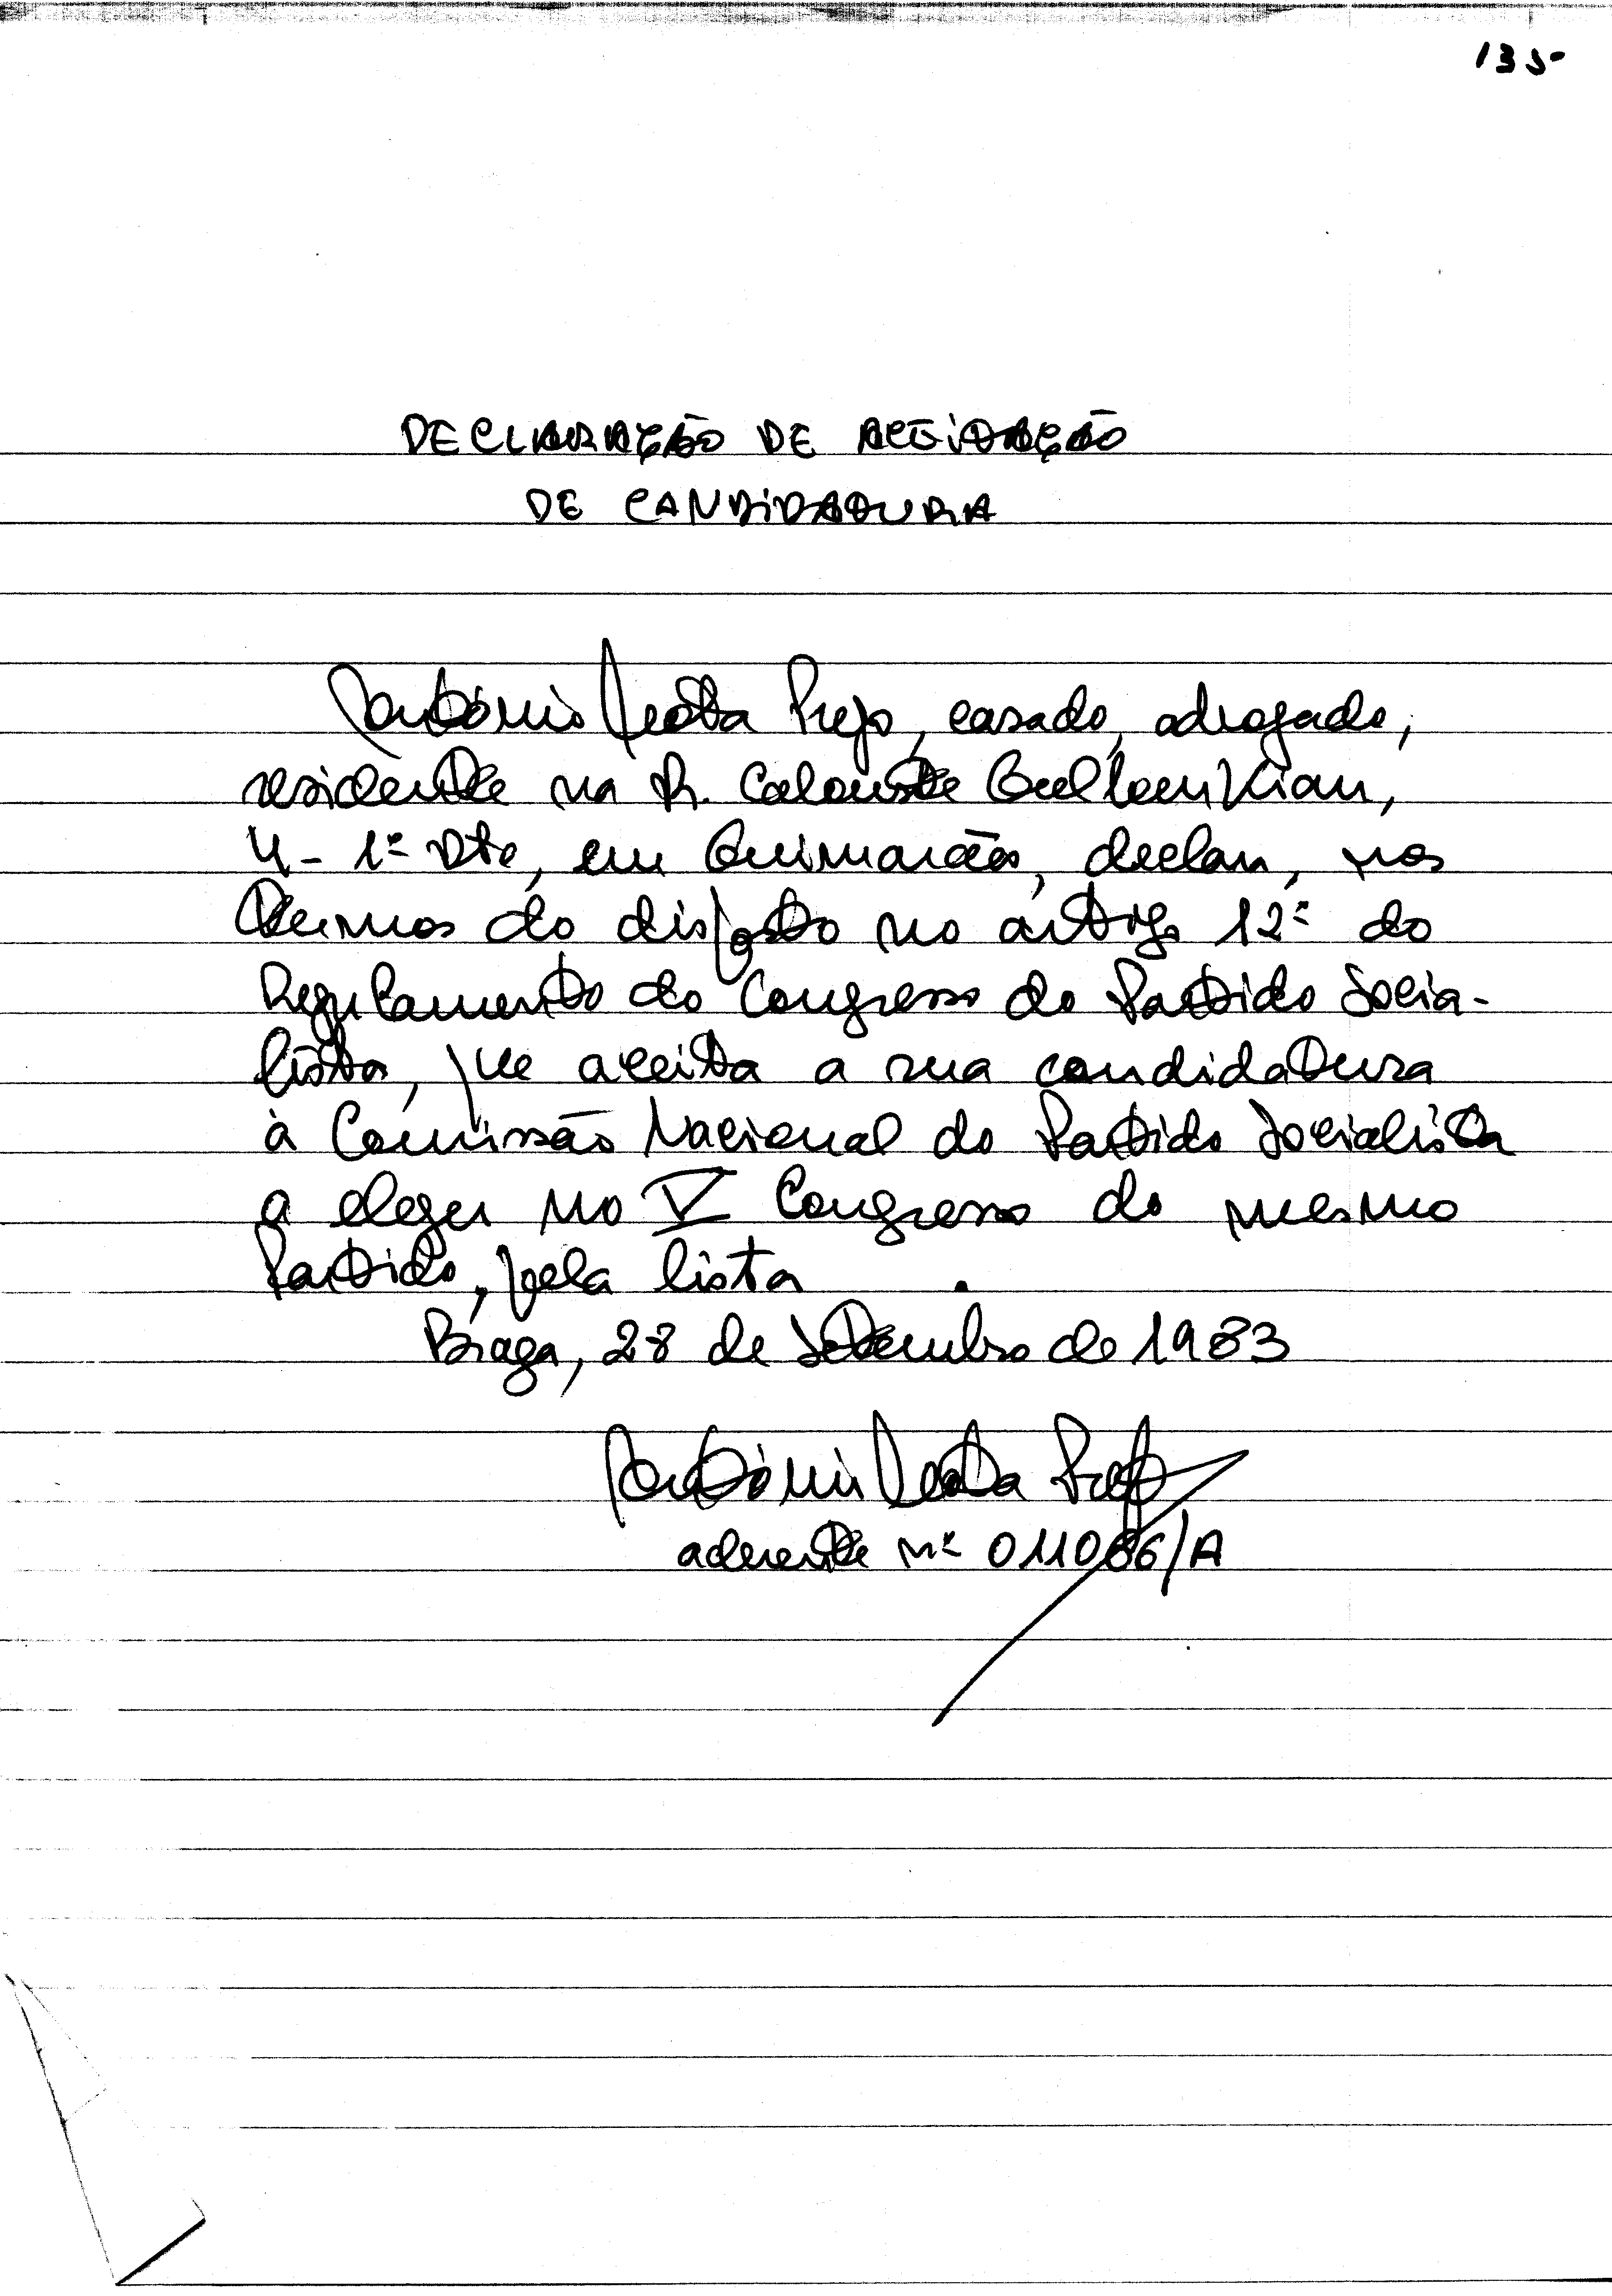 135
DECLARAÇÃO DE ACEITAÇÃO
DE CANDIDATURA
António Mota Prego, casado, advogado,
residente na R. Calouste Gulbenkian,
4 - 1º Dto, em Guimarães, declara, nos
termos do disposto no artigo 12º do
Regulamento do Congresso do Partido Socia-
lista, que aceita a sua candidatura
à Comissão Nacional do Partido Socialista
a eleger no V Congresso do mesmo
Partido, pela lista .
Braga, 28 de Setembro de 1983
António Mota Prego
aderente nº 011086/A